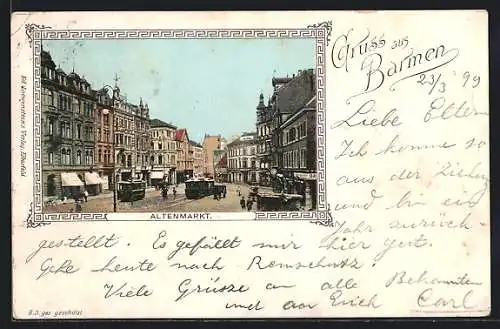 Gruss aus
Barmen
23/3 99
Liebe Eltern
Ich komme so
aus der Ziehung
und bin ein
Jahr zurück-
gestellt. Es gefällt mir hier gut.
Gehe heute nach Remscheid.
Viele Grüsse an alle Bekannten
und an Erich Carl
ALTENMARKT.
Verlag, Elberfeld
ges. geschützt